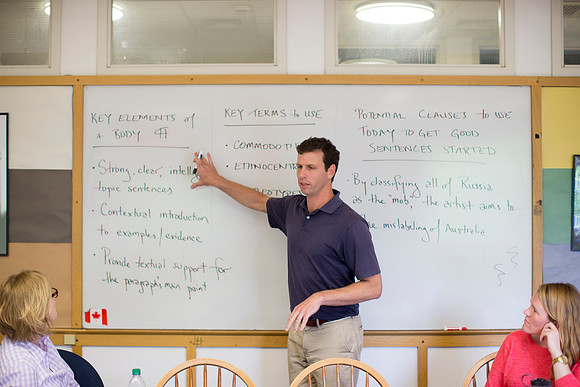 KEY ELEMENTS of
A BODY ¶
• Strong, clear,
topic sentences
• Contextual introduction
to examples/evidence
• Provide textual support for
the paragraph's main point
KEY TERMS to USE
•
•
POTENTIAL CLAUSES to USE
TODAY TO GET GOOD
SENTENCES STARTED
• By classifying all of Russia
as the "mob", the artist aims to...
the mislabeling of Australia